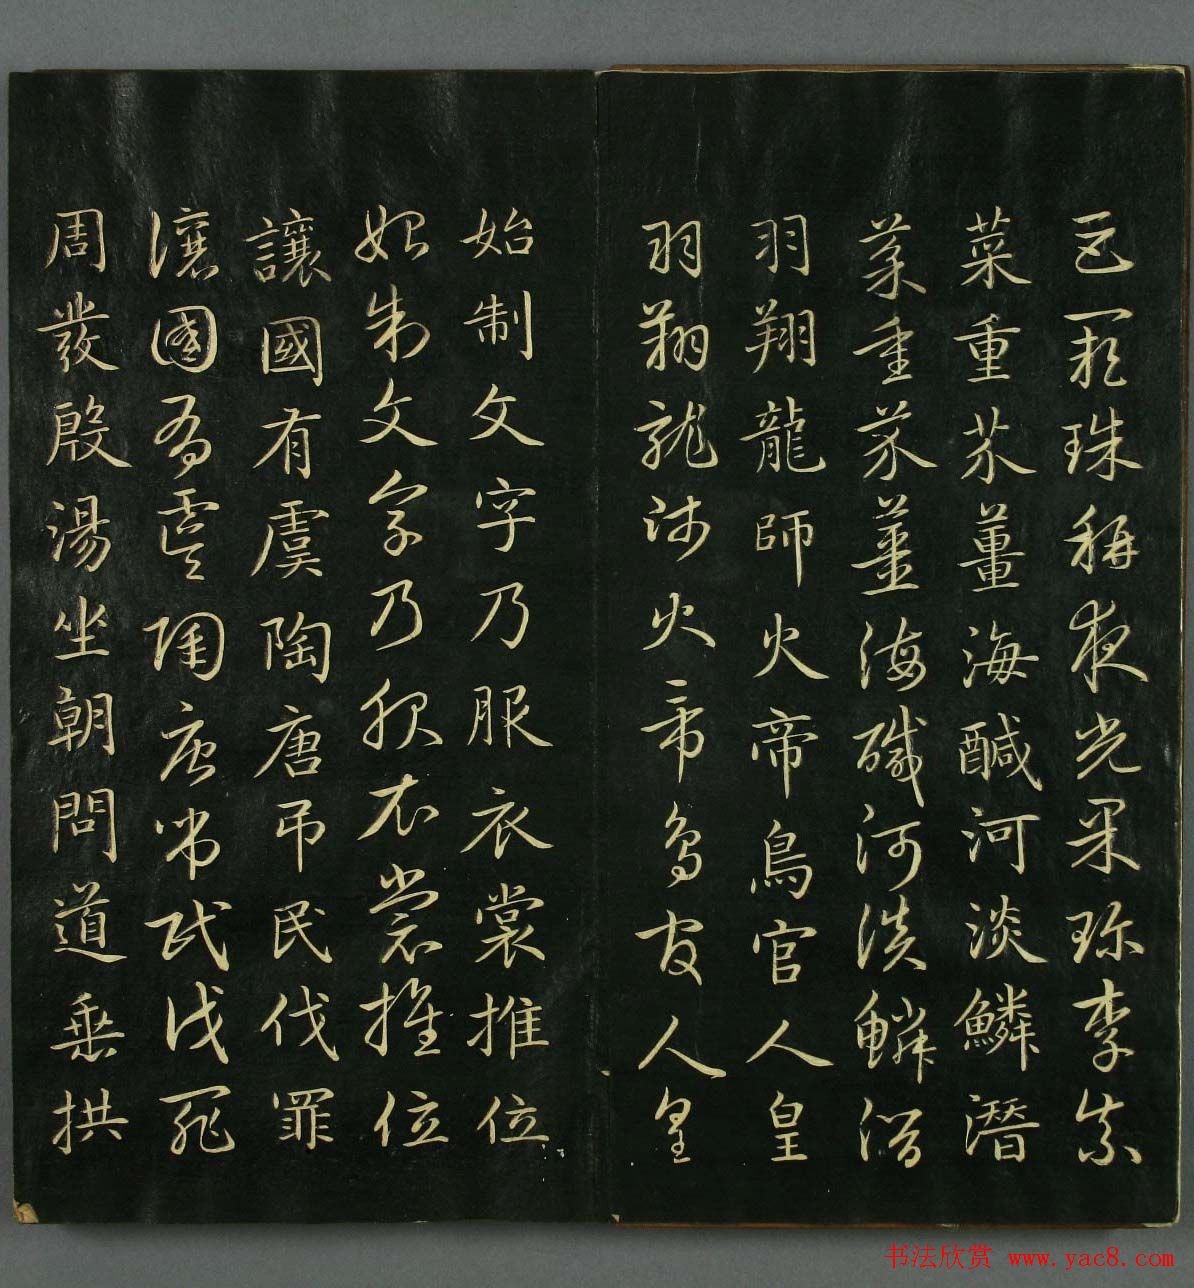 巨闕珠稱夜光果珍李柰
菜重芥薑海醎河淡鱗潛
菜重芥薑海醎河淡鱗潛
羽翔龍師火帝鳥官人皇
羽翔龍師火帝鳥官人皇
始制文字乃服衣裳推位
始制文字乃服衣裳推位
讓國有虞陶唐吊民伐罪
讓國有虞陶唐吊民伐罪
周發殷湯坐朝問道垂拱
书法欣赏 www.yac8.com